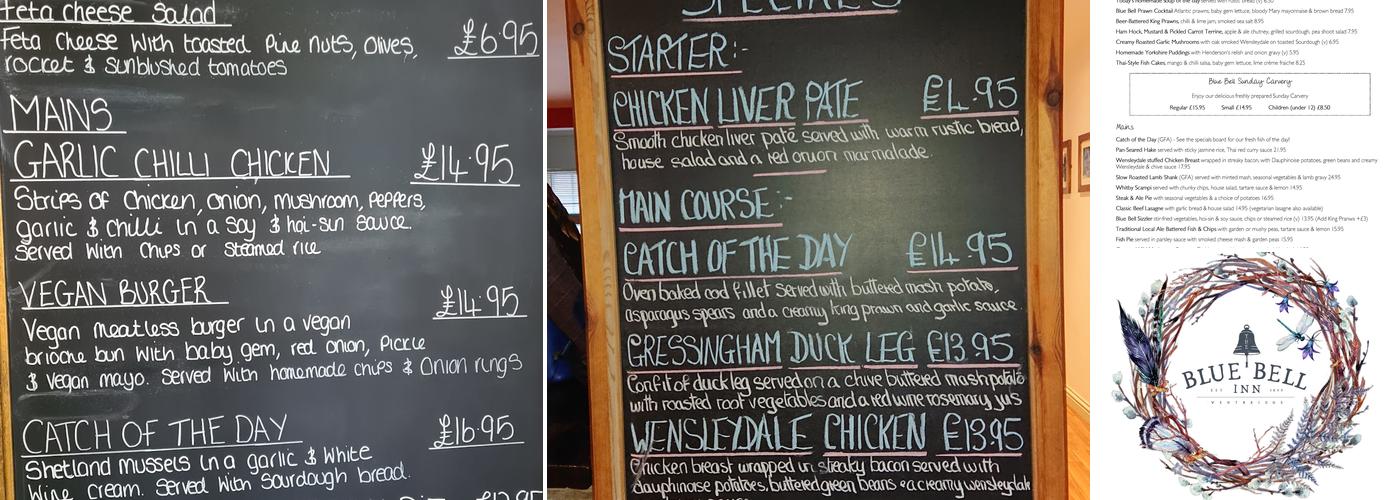 Feta Cheese Salad £6.95
Feta Cheese With toasted Pine nuts, Olives,
rocket & Sunblushed tomatoes
MAINS
GARLIC CHILLI CHICKEN £14.95
Strips of Chicken, onion, mushroom, Peppers,
garlic & chilli in a Soy & hoi-sin Sauce.
Served With Chips or Steamed rice
VEGAN BURGER £14.95
Vegan meatless burger in a vegan
brioche bun With baby gem, red onion, Pickle
& Vegan mayo. Served With homemade chips & Onion rings
CATCH OF THE DAY £16.95
Shetland mussels in a garlic & White
Wine Cream. Served With Sourdough bread.
SPECIALS
STARTER:-
CHICKEN LIVER PATE £4.95
Smooth chicken liver paté served with warm rustic bread,
house salad and a red onion marmalade.
MAIN COURSE:-
CATCH OF THE DAY £14.95
Oven baked cod fillet served with buttered mash potato,
asparagus spears and a creamy king prawn and garlic sauce.
GRESSINGHAM DUCK LEG £13.95
Confit of duck leg served on a chive buttered mash potato
with roasted root vegetables and a red wine rosemary jus
WENSLEYDALE CHICKEN £13.95
Chicken breast wrapped in streaky bacon served with
dauphinoise potatoes, buttered green beans & a creamy wensleydale
Today's homemade soup of the day served with rustic bread (v) 6.50
Blue Bell Prawn Cocktail Atlantic prawns, baby gem lettuce, bloody Mary mayonnaise & brown bread 7.95
Beer-Battered King Prawns, chilli & lime jam, smoked sea salt 8.95
Ham Hock, Mustard & Pickled Carrot Terrine, apple & ale chutney, grilled sourdough, pea shoot salad 7.95
Creamy Roasted Garlic Mushrooms with oak smoked Wensleydale on toasted Sourdough (v) 6.95
Homemade Yorkshire Puddings with Henderson's relish and onion gravy (v) 5.95
Thai-Style Fish Cakes, mango & chilli salsa, baby gem lettuce, lime crème fraiche 8.25
Blue Bell Sunday Carvery
Enjoy our delicious freshly prepared Sunday Carvery
Regular £15.95 Small £14.95 Children (under 12) £8.50
Mains
Catch of the Day (GFA) - See the specials board for our fresh fish of the day!
Pan-Seared Hake served with sticky jasmine rice, Thai red curry sauce 21.95
Wensleydale stuffed Chicken Breast wrapped in streaky bacon, with Dauphinoise potatoes, green beans and creamy
Wensleydale & chive sauce 17.95
Slow Roasted Lamb Shank (GFA) served with minted mash, seasonal vegetables & lamb gravy 24.95
Whitby Scampi served with chunky chips, house salad, tartare sauce & lemon 14.95
Steak & Ale Pie with seasonal vegetables & a choice of potatoes 16.95
Classic Beef Lasagne with garlic bread & house salad 14.95 (vegetarian lasagne also available)
Blue Bell Sizzler stir-fried vegetables, hoi-sin & soy sauce, chips or steamed rice (v) 13.95 (Add King Prawns +£3)
Traditional Local Ale Battered Fish & Chips with garden or mushy peas, tartare sauce & lemon 15.95
Fish Pie served in parsley sauce with smoked cheese mash & garden peas 15.95
BLUE BELL
INN
WENTBRIDGE